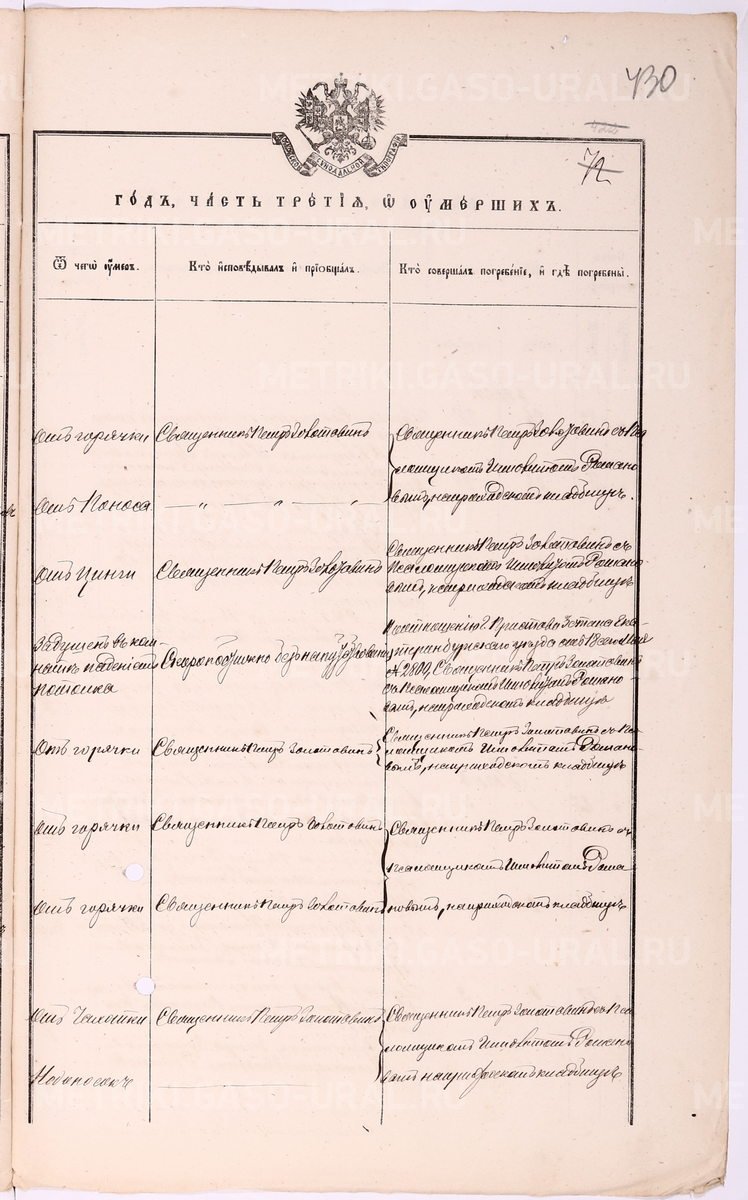 430
72
МОСКОВСКОЙ СѴНОДАЛЬНОЙ ТѴПОГРАФІИ
ГОДЪ, ЧАСТЬ ТРЕТІЯ, Ѡ ОУМЕРШИХЪ.
Ѿ чегѡ оумеръ.
Кто исповѣдывалъ и пріобщалъ.
Кто совершалъ погребеніе, и гдѣ погребены.
Отъ горячки
Священникъ Петръ Золотавинъ
Священникъ Петръ Золотавинъ съ Пса
ломщикомъ Иннокентіемъ Романо
вымъ, на приходскомъ кладбищѣ.
Отъ Поноса
— „ — „ — „
Отъ Цинги
Священникъ Петръ Золотавинъ
Священникъ Петръ Золотавинъ съ
Псаломщикомъ Романо
вымъ, на приходскомъ кладбищѣ
Задушенъ въ ком-
натѣ паденіемъ
потолка
Скоропостижно безъ напутствованія
По отношенію Г. Пристава 3 стана Ека
теринбургскаго уѣзда отъ 18 сего Мая
№ 2800, Священникъ Петръ Золотавинъ
съ Псаломщикомъ Романо
вымъ, на приходскомъ кладбищѣ
Отъ горячки
Священникъ Петръ Золотавинъ
Священникъ Петръ Золотавинъ съ Пса
ломщикомъ Романо
вымъ, на приходскомъ кладбищѣ
Отъ горячки
Священникъ Петръ Золотавинъ
Священникъ Петръ Золотавинъ съ
псаломщикомъ Рома
Отъ горячки
Священникъ Петръ Золотавинъ
новымъ, на приходскомъ кладбищѣ
Отъ Чахотки
Священникъ Петръ Золотавинъ
Священникъ Петръ Золотавинъ съ Пса
ломщикомъ Романо
Недоносокъ
вымъ на приходскомъ кладбищѣ
METRIKI.GASO-URAL.RU